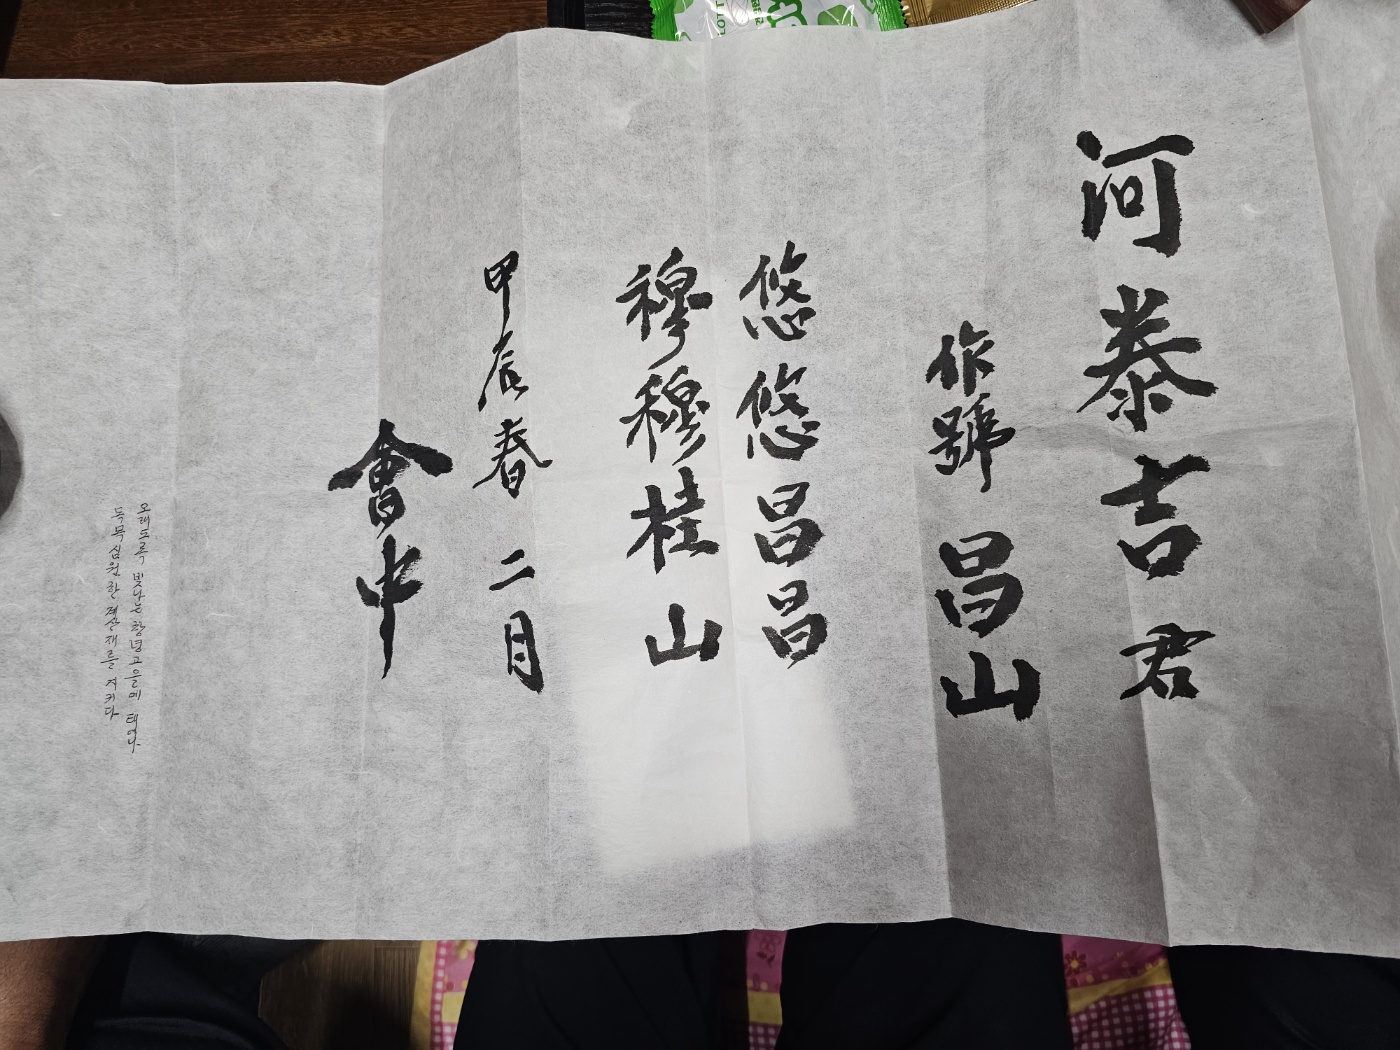 河泰吉君
作號 昌山
悠悠昌昌
穆穆桂山
甲辰春 二月
會中
오래도록 빛나는 창녕고을에 태어나
독목심원한 계산재를 지키다